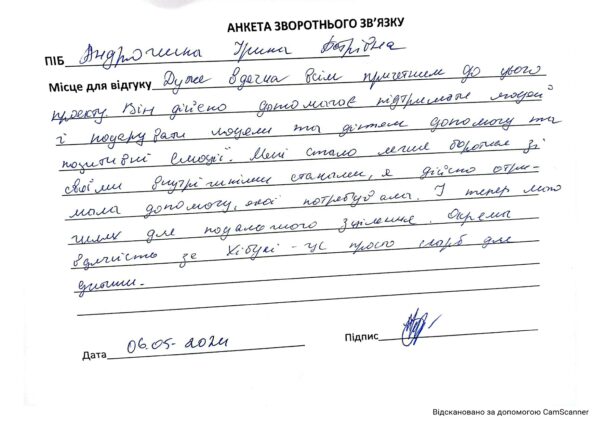 АНКЕТА ЗВОРОТНЬОГО ЗВ'ЯЗКУ
ПІБ Андрюшина Ірина
Місце для відгуку Дуже вдячна всім причетним до цього
проєкту. Він дійсно допомогає підтримати людей
і подарувати людям та дітям допомогу та
позитивні емоції. Мені стало легше боротися зі
своїми внутрішніми станами, я дійсно отри-
мала допомогу, якої потребувала. І тепер маю
шлях для подальшого зцілення. Окрема
вдячність за Хібукі - це просто скарб для
дитини.
Дата 06.05-2024
Підпис
Відскановано за допомогою CamScanner